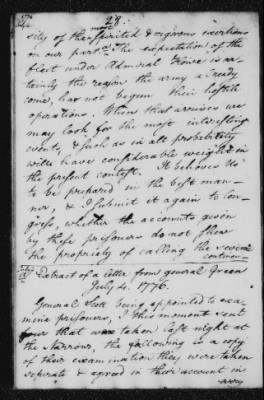 28
sity of the most spirited & vigorous exertions
on our part. The expectation of the
fleet under Admiral Howe is cer-
tainly the reason the army already
come, has not begun their hostile
operations. When that arrives we
may look for the most interesting
events, & such as in all probability
will have considerable weight in
the present contest. It behoves us
to be prepared in the best man-
ner, & I submit it again to Con-
gress, whether the accounts given
by these prisoners do not shew
the propriety of calling the several
continen-
Extract of a letter from general Green
July 4. 1776.
General Scott being appointed to exa-
mine prisoners, I this moment sent
four that was taken last night at
the Narrows, the following is a copy
of their examination they were taken
seperate & agreed in their account in
every